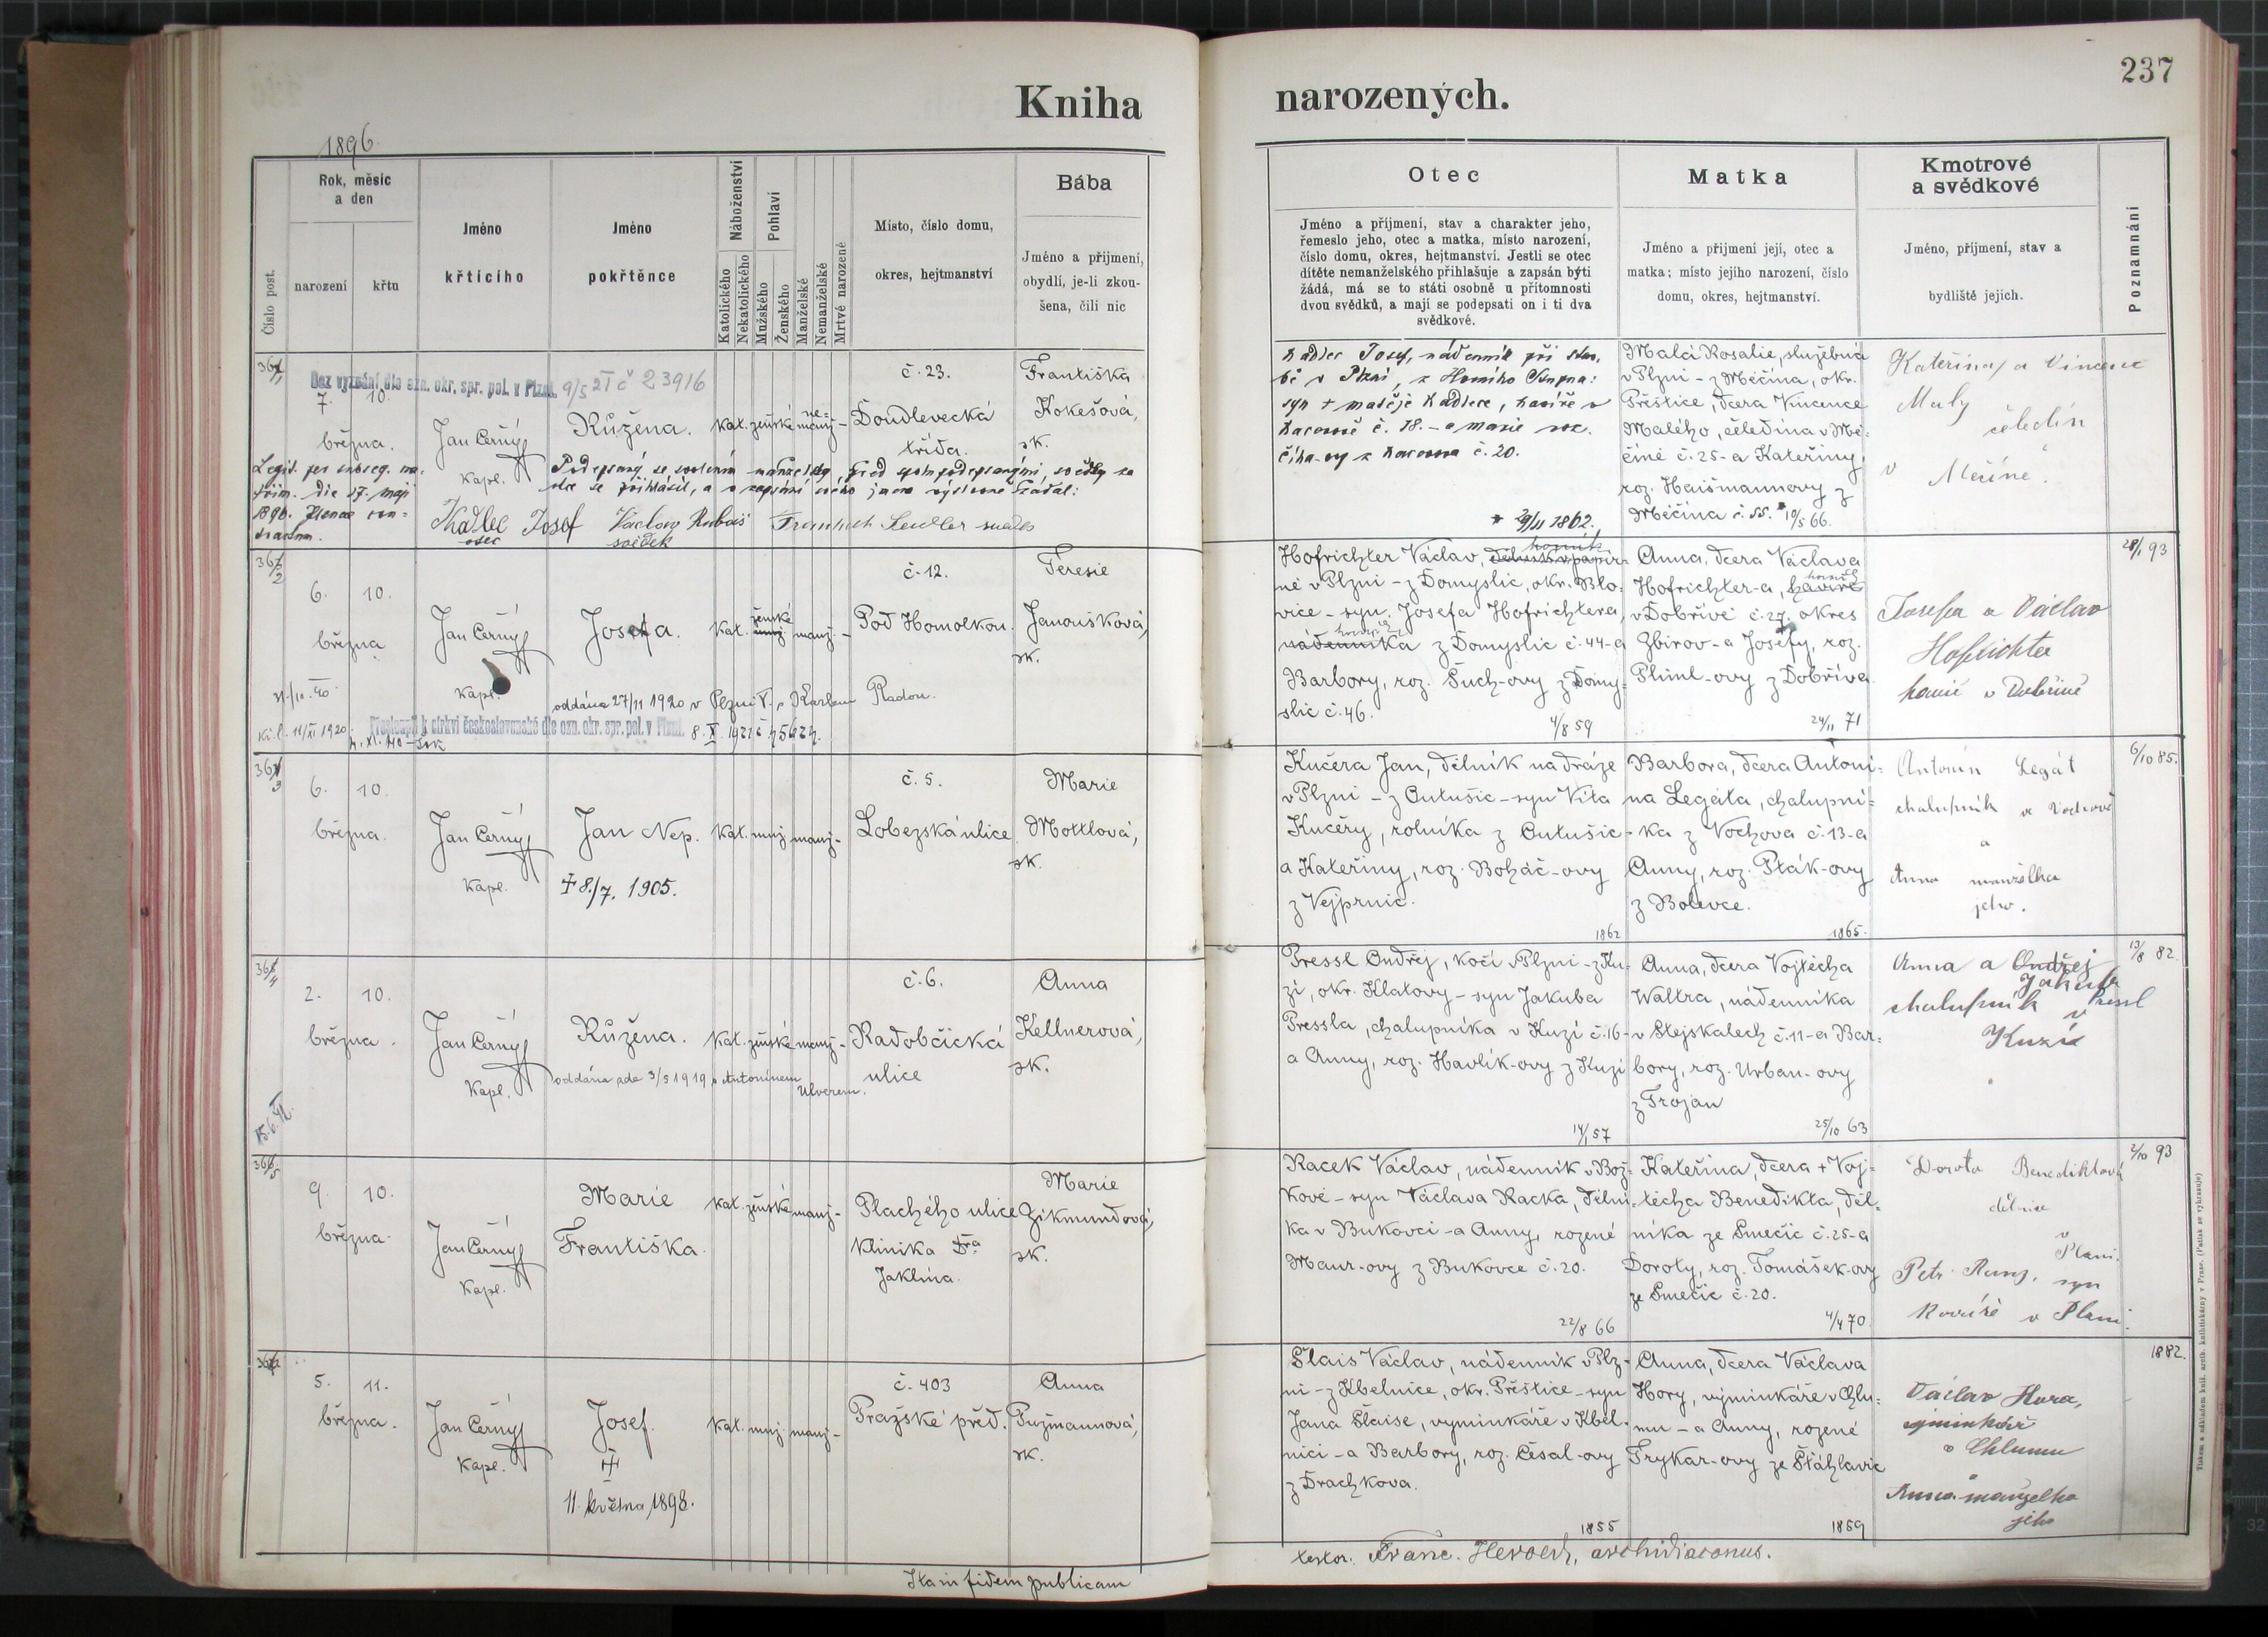 Kniha
narozených.
237
1896.
Číslo post.
Rok, měsíc
a den
narození
křtu
Jméno
křticího
Jméno
pokřtěnce
Náboženství
Katolického
Nekatolického
Pohlaví
Mužského
Ženského
Manželské
Nemanželské
Mrtvě narozené
Místo, číslo domu,
okres, hejtmanství
Bába
Jméno a přijmení,
obydlí, je-li zkou-
šena, čili nic
Otec
Jméno a příjmení, stav a charakter jeho,
řemeslo jeho, otec a matka, místo narození,
číslo domu, okres, hejtmanství. Jestli se otec
dítěte nemanželského přihlašuje a zapsán býti
žádá, má se to státi osobně u přítomnosti
dvou svědků, a mají se podepsati on i ti dva
svědkové.
Matka
Jméno a přijmení její, otec a
matka; místo jejího narození, číslo
domu, okres, hejtmanství.
Kmotrové
a svědkové
Jméno, příjmení, stav a
bydliště jejich.
Poznamnání
Bez vyznání dle ozn. okr. spr. pol. v Plzni. 9/5 21 č 23916
7. 10.
března.
Jan Černý
Kapl.
Růžena.
kat. ženské
ne=
manž -
č. 23.
Doudlevecká
třída.
Františka
Kokešová,
zk.
Legit. per subseq. ma-
trim. die 17. maji
1896. Plsnae con-
tractum.
Podepsaný se svolením manželky před spolupodepsanými svědky za
otce se přihlásil, a o zapsání svého jmena výslovně žádal:
Kadlec Josef Václav Kubáš
otec svědek
Kadlec Josef, nádenník při stav-
bě v Plzni, z Horního
syn + Matěje Kadlece, havíře v
č. 18. - a Marie roz.
z č. 20.
* 29/11 1862.
Malá Rosalie, služebná
v Plzni - z Měčína, okr.
Přeštice, dcera Vincence
Malého, čeledína v Mě-
číně č. 25 - a Kateřiny,
roz. Haišmannovy z
Měčína č. 55. * 10/5 66.
Kateřina a Vincenc
Malý
čeledín
v Měčíně.
6. 10.
března
Jan Černý
Kapl.
Josefa.
kat. ženské manž. -
č. 12.
Pod Homolkou.
Teresie
Janoušková,
zk.
oddána 27/11 1920 v Plzni V. s Karlem Radou.
Přestoupil k církvi československé dle ozn. okr. spr. pol. v Plzni. 8. X. 1921 č. 75627.
Hofrichter Václav, dělník v papír- horník
ně v Plzni - z Domyslic, okr. Blo-
vice - syn Josefa Hofrichtera,
nádenníka z Domyslic č. 44 - a
Barbory, roz. Such-ovy z Domy-
slic č. 46.
4/8 59
Anna, dcera Václava
Hofrichter-a, havíře
v Dobřívě č. 27, okres
Zbirov - a Josefy, roz.
Pliml-ovy z Dobříva.
24/11 71
Josefa a Václav
Hofrichter
havíř v Dobřívě
28/1 93
6. 10.
března.
Jan Černý
Kapl.
Jan Nep.
‡ 8./7. 1905.
kat. muž. manž. -
č. 5.
Lobezská ulice
Marie
Mottlová,
zk.
Kučera Jan, dělník na dráze
v Plzni - z Outušic - syn Víta
Kučery, rolníka z Outušic -
a Kateřiny, roz. Boháč-ovy
z Vejprnic.
1862
Barbora, dcera Antoni-
na Legáta, chalupní-
ka z Vochova č. 13 - a
Anny, roz. Pták-ovy
z Bolevce.
1865.
Antonín Legát
chalupník ve Vochově
a
Anna manželka
jeho.
6/10 85.
2. 10.
března.
Jan Černý
Kapl.
Růžena.
kat. ženské manž. -
č. 6.
Radobčická
ulice
Anna
Kellnerová,
zk.
oddána zde 3/5 1919 s Antonínem
Ulverem.
Pressl Ondřej, kočí v Plzni - z Ku-
zí, okr. Klatovy - syn Jakuba
Pressla, chalupníka v Kuzí č. 16 -
a Anny, roz. Havlík-ovy z Kuzí
14/1 57
Anna, dcera Vojtěcha
Waltra, nádenníka
v Stejskalech č. 11 - a Bar-
bory, roz. Urban-ovy
z Trojan
25/10 63
Anna a Ondřej
Jakub
chalupník Pressl
v
Kuzí
13/8 82.
9. 10.
března.
Jan Černý
Kapl.
Marie
Františka.
kat. ženské manž. -
Plachého ulice
Klinika Dra
Jaklína.
Marie
Zikmundová,
zk.
Racek Václav, nádenník v Bož-
kově - syn Václava Racka, dělní-
ka v Bukovci - a Anny, rozené
Maur-ovy z Bukovce č. 20.
22/8 66
Kateřina, dcera + Voj-
těcha Benedikta, děl-
níka ze Smečic č. 25 - a
Doroty, roz. Tomášek-ovy
ze Smečic č. 20.
4/4 70
Dorota Benediktová
dělnice
v
Plani.
Petr Renz, syn
kováře v Plani.
2/10 93
5. 11.
března.
Jan Černý
Kapl.
Josef.
‡
11. května 1898.
kat. muž. manž. -
č. 403
Pražské před.
Anna
Pužmannová,
zk.
Šlais Václav, nádenník v Plz-
ni - z Kbelnice, okr. Přeštice - syn
Jana Šlaise, vyminkáře v Kbel-
nici - a Barbory, roz. Česal-ovy
z Drachkova.
1855
Anna, dcera Václava
Hory, výminkáře v Chlu-
mu - a Anny, rozené
Trykar-ovy ze Šťáhlavic
1859
Václav Hora,
výminkář
v Chlumu
a
Anna manželka
jeho
1882.
Ita in fidem publicam
testor: Franc. Herold, archidiaconus.